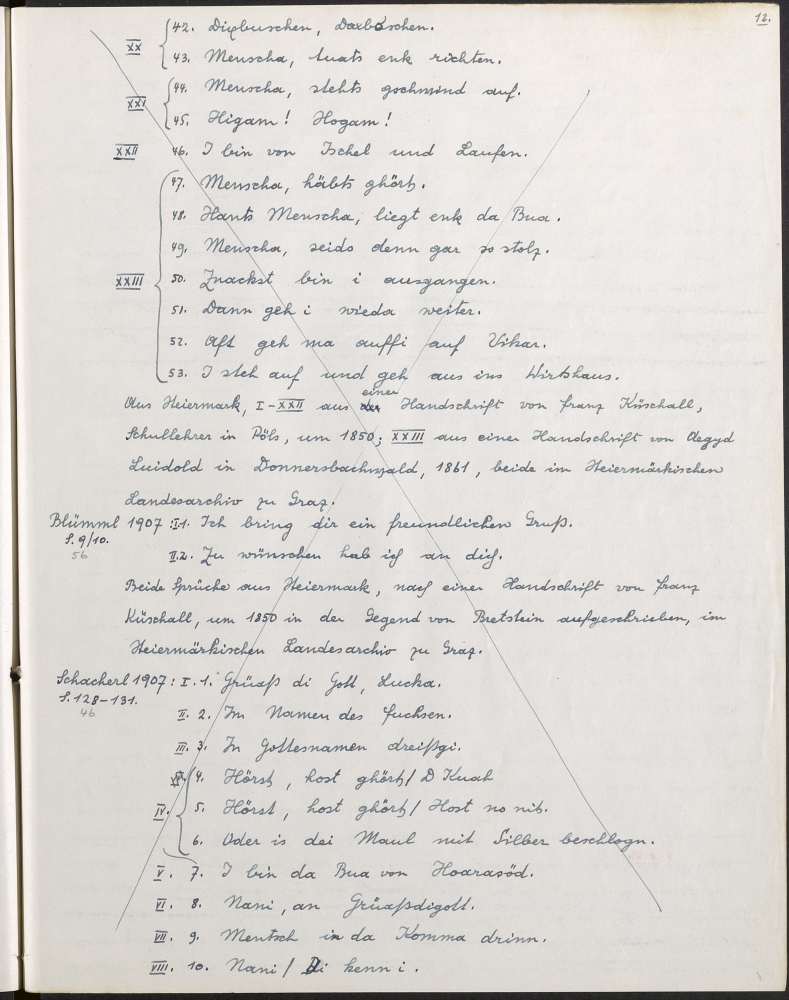 12.
XX 42. Dixbuschen, Daxboschen.
43. Menscha, tuats enk richten.
XXI 44. Menscha, stehts gschwind auf.
45. Higam! Hogam!
XXII 46. I bin von Ischel und Laufen.
47. Menscha, häbts ghört.
48. Hants Menscha, liegt enk da Bua.
49. Menscha, seids denn gar so stolz.
XXIII 50. Znackst bin i ausgangen.
51. Dann geh i wieda weiter.
52. Aft geh ma auffi auf Vikar.
53. I steh auf und geh aus ins Wirtshaus.
Aus Steiermark, I-XXII aus einer Handschrift von FranzKüschall,
Schullehrer in Pöls, um 1850; XXIII aus einer Handschrift von Aegyd
Luidold in Donnersbachwald, 1861, beide im Steiermärkischen
Landesarchiv zu Graz.
Blümml 1907: I.1. Ich bring dir ein freundlichen Gruß.
S. 9/10.
56
II.2. Zu wünschen hab ich an dich.
Beide Sprüche aus Steiermark, nach einer Handschrift von Franz
Küschall, um 1850 in der Gegend von Bretstein aufgeschrieben, im
Steiermärkischen Landesarchiv zu Graz.
Schacherl 1907: I. 1. Grüaß di Gott, Lucka.
S. 128-131.
46
II. 2. Im Namen des Fuchsen.
III. 3. In Gottesnamen dreißgi.
4. Hörst, host ghört/ D Kuah
IV. 5. Hörst, host ghört/ Host no nit.
6. Oder is dei Maul mit Silber beschlogn.
V. 7. I bin da Bua von Hoarasöd.
VI. 8. Nani, an Grüaßdigott.
VII. 9. Mentsch in da Komma drinn.
VIII. 10. Nani/ Di kenn i.